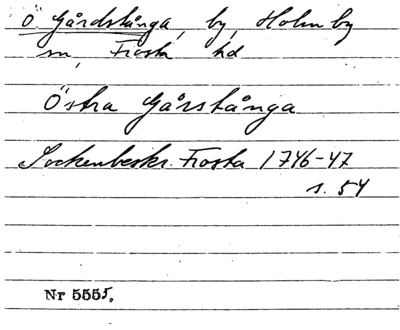 Ö. Gårdstånga, by, Holmby
sn, Frosta hd
Östra Gårstånga
Sockenbeskr. Frosta 1746-47
s. 54
Nr 5555.